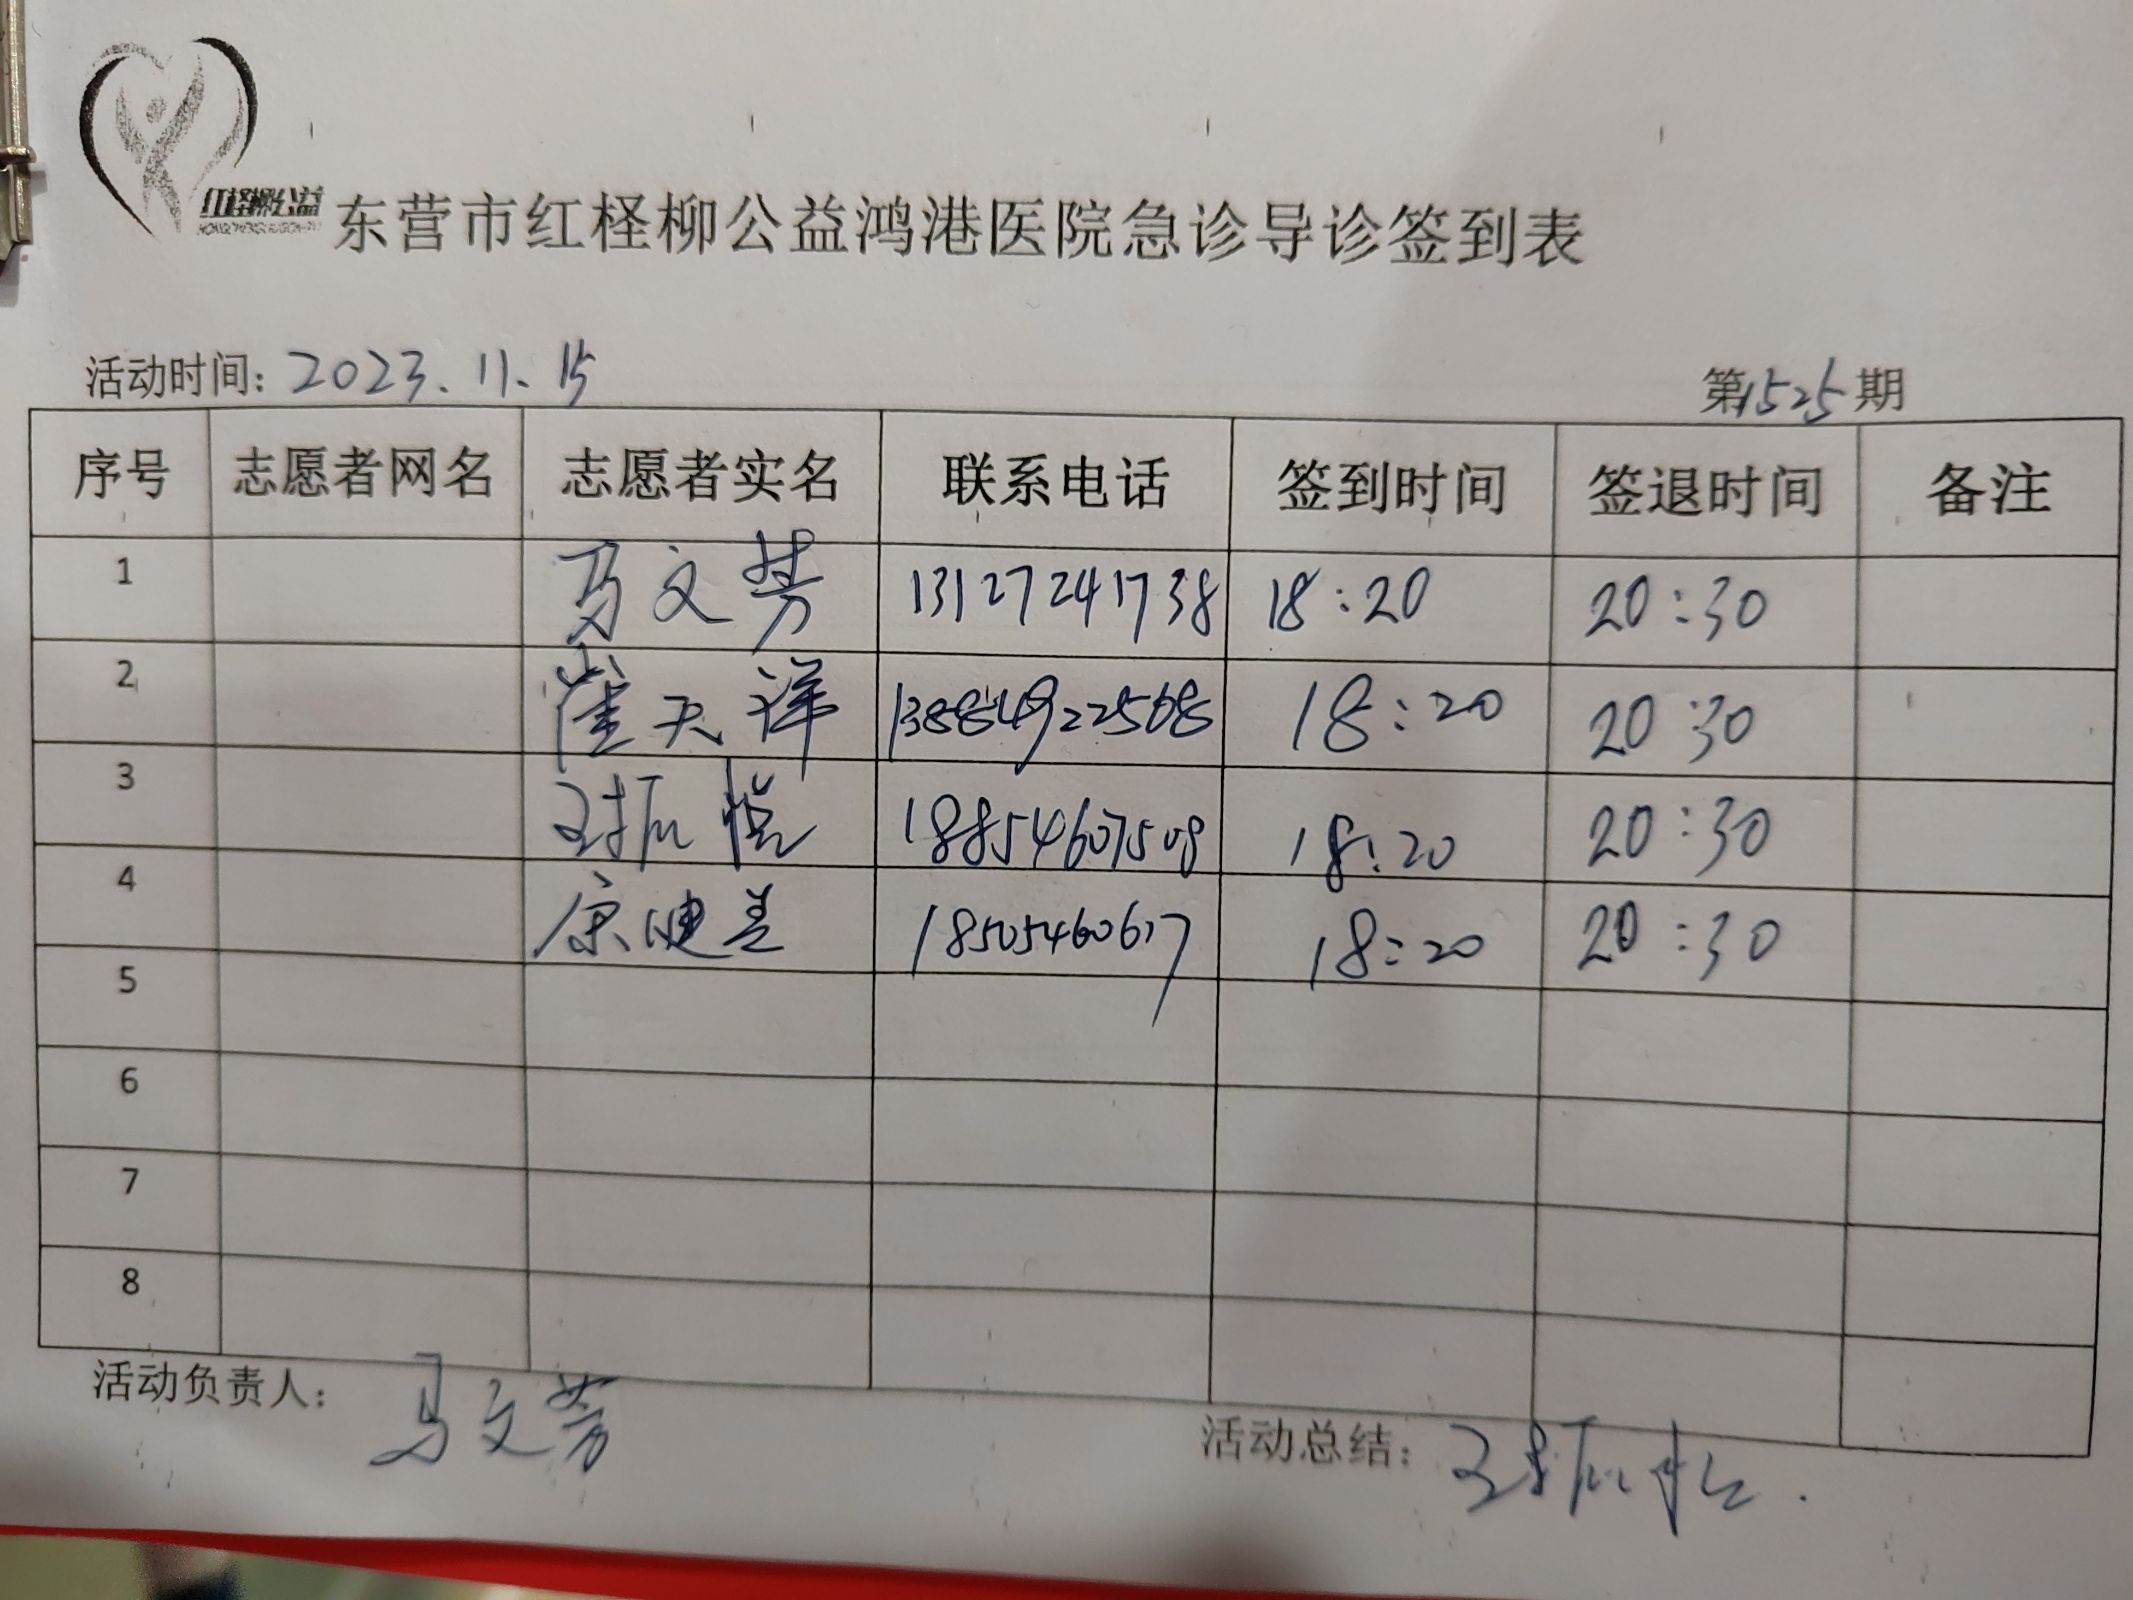 红柽柳公益
东营市红柽柳公益鸿港医院急诊导诊签到表
活动时间: 2023.11.15 第1525期
序号 志愿者网名 志愿者实名 联系电话 签到时间 签退时间 备注
1 马文芳 13127241738 18:20 20:30
2 崔天洋 13884922568 18:20 20:30
3 悦 18854607508 18:20 20:30
4 康健美 18505460617 18:20 20:30
5
6
7
8
活动负责人: 马文芳
活动总结: